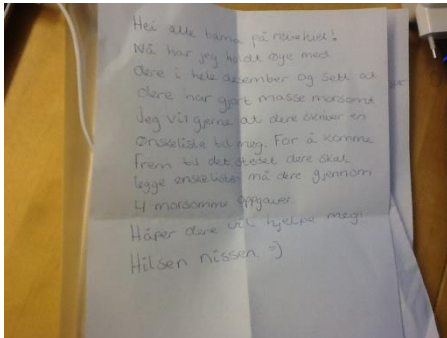 Hei alle barna på
Nå har jeg holdt øye med
dere i hele desember og sett at
dere har gjort masse morsomt
Jeg vil gjerne at dere skriver en
ønskeliste til meg. For å komme
frem til det stedet dere skal
legge ønskelisten må dere gjennom
4 morsomme oppgaver.
Håper dere vil hjelpe meg!
Hilsen nissen :)